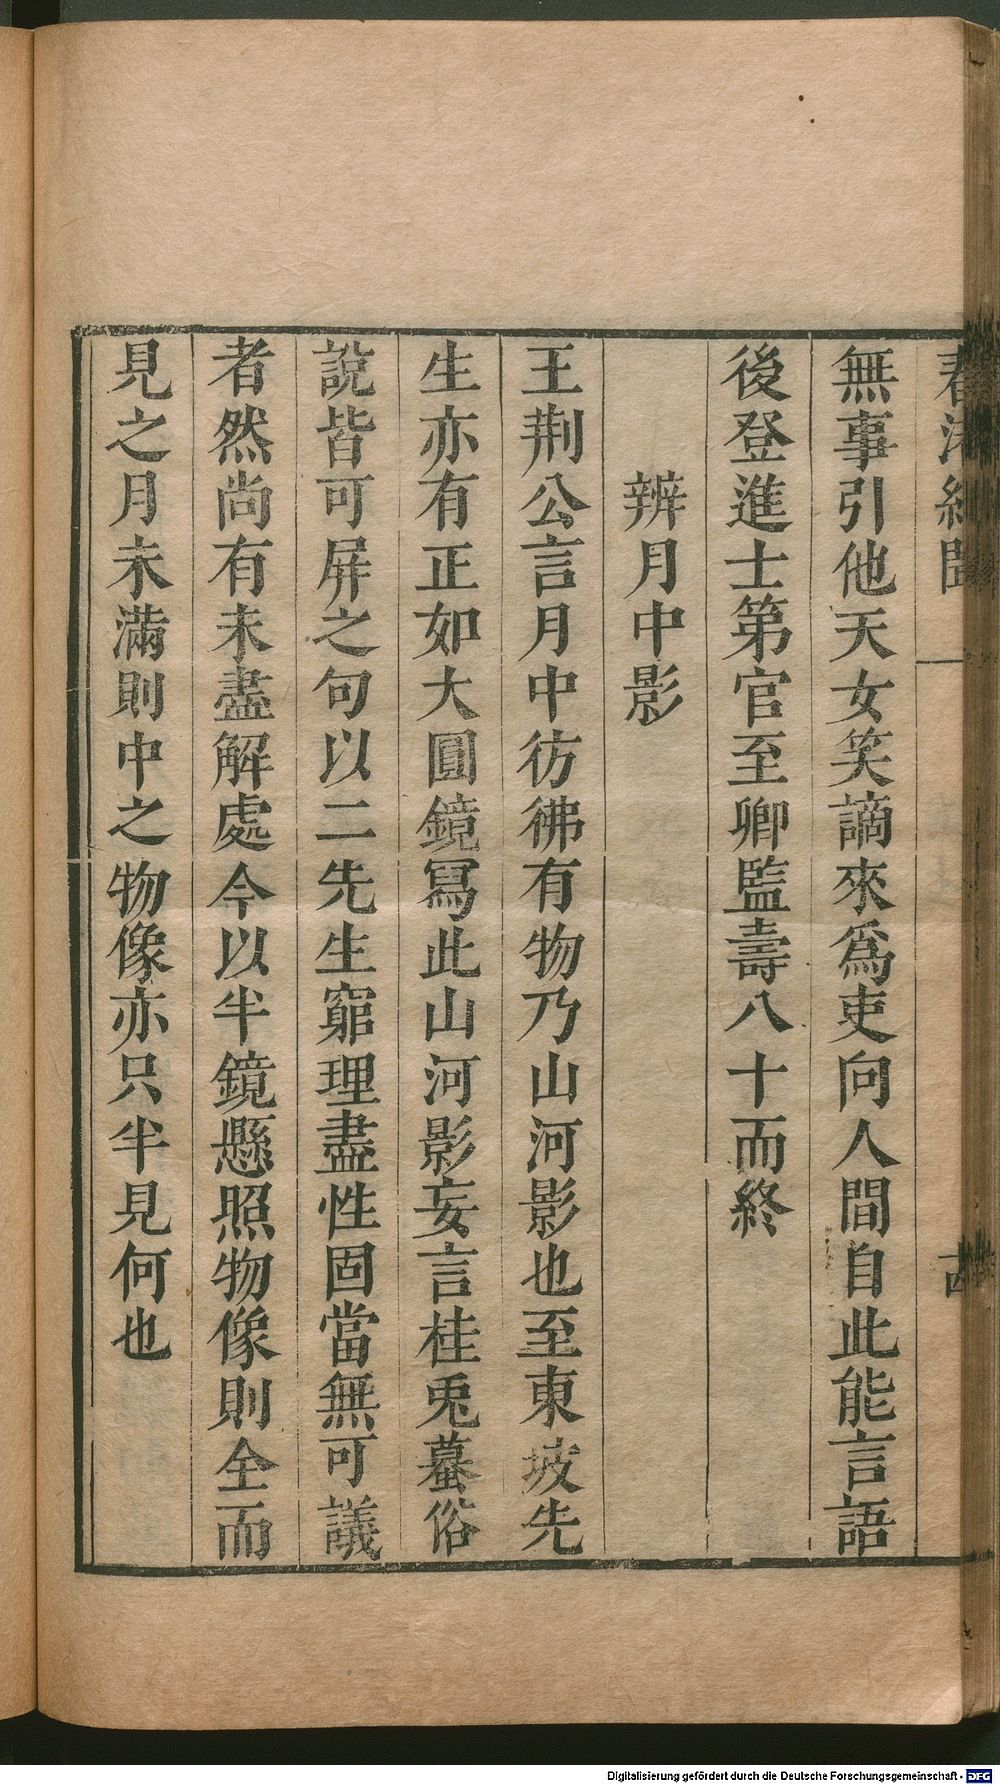 無事引他天女笑謫來爲吏向人間自此能言語
後登進士第官至卿監壽八十而終
辨月中影
王荆公言月中彷彿有物乃山河影也至東坡先
生亦有正如大圓鏡寫此山河影妄言桂兎蟇俗
說皆可屏之句以二先生窮理盡性固當無可議
者然尚有未盡解處今以半鏡懸照物像則全而
見之月未滿則中之物像亦只半見何也
Digitalisierung gefördert durch die Deutsche Forschungsgemeinschaft - DFG